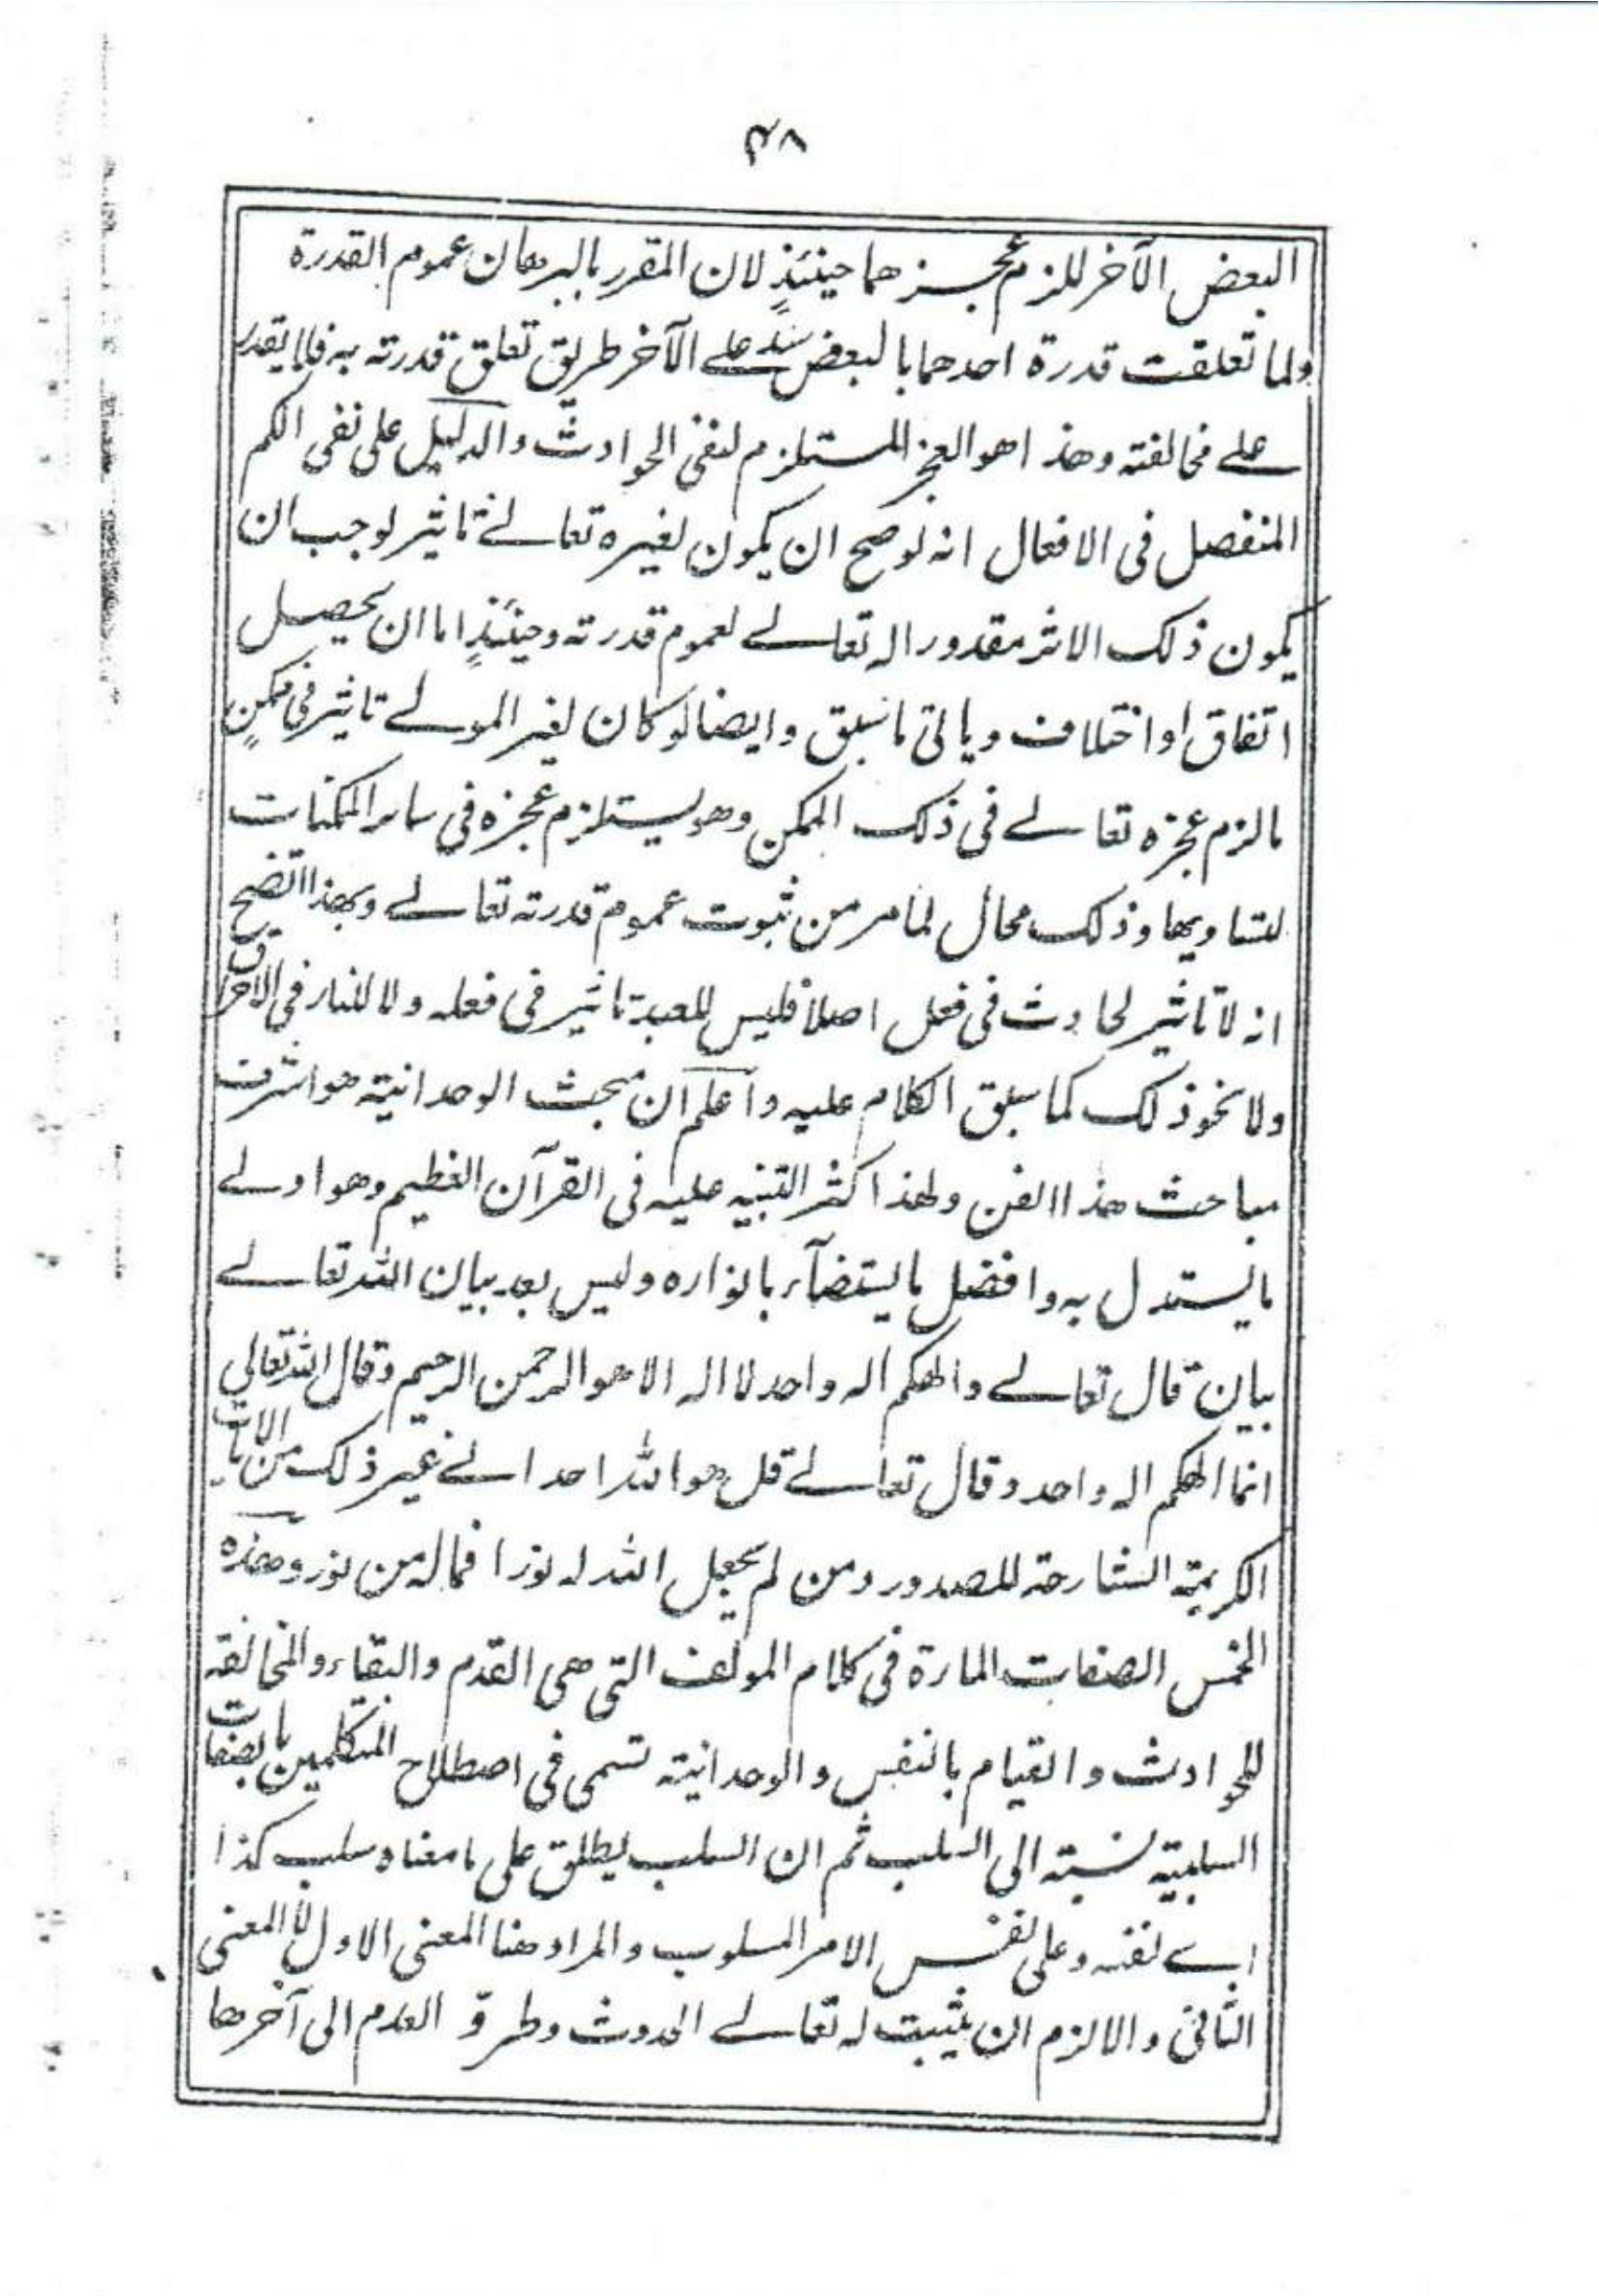 ٣٨
البعض الآخر للزم عجزهما حينئذٍ لان المقرر بالبرهان عموم القدرة
ولما تعلقت قدرة احدهما بالبعض سد على الآخر طريق تعلق قدرته به فلا يقدر
على مخالفته وهذا هو العجز المستلزم لنفي الحوادث والدليل على نفي الكم
المنفصل في الافعال انه لو صح ان يكون لغيره تعالى تاثير لوجب ان
يكون ذلك الاثر مقدورا له تعالى لعموم قدرته وحينئذٍ اما ان يحصل
اتفاق او اختلاف وياتي ما سبق وايضا لو كان لغير المولى تاثير في ممكنٍ
ما لزم عجزه تعالى في ذلك الممكن وهو يستلزم عجزه في سائر الممكنات
لتساويها وذلك محال لما مر من ثبوت عموم قدرته تعالى وبهذا اتضح
انه لا تاثير لحادث في فعل اصلا فليس للعبد تاثير في فعله ولا للنار في الاحراق
ولا نحو ذلك كما سبق الكلام عليه واعلم ان مبحث الوحدانية هو اشرف
مباحث هذا الفن ولهذا كثر التنبيه عليه في القرآن العظيم وهو اولى
ما يستدل به وافضل ما يستضآء بانواره وليس بعد بيان الله تعالى
بيان قال تعالى والهكم اله واحد لا اله الا هو الرحمن الرحيم وقال الله تعالى
انما الهكم اله واحد وقال تعالى قل هو الله احد الى غير ذلك من الايات
الكريمة الشارحة للصدور ومن لم يجعل الله له نورا فما له من نور وهذه
الخمس الصفات المارة في كلام المولف التي هي القدم والبقاء والمخالفة
للحوادث والقيام بالنفس والوحدانية تسمى في اصطلاح المتكلمين بالصفات
السلبية نسبة الى السلب ثم ان السلب يطلق على ما معناه سلب كذا
اي نفيه وعلى نفس الامر المسلوب والمراد هنا المعنى الاول لا المعنى
الثاني والا لزم ان يثبت له تعالى الحدوث وطروّ العدم الى آخرها